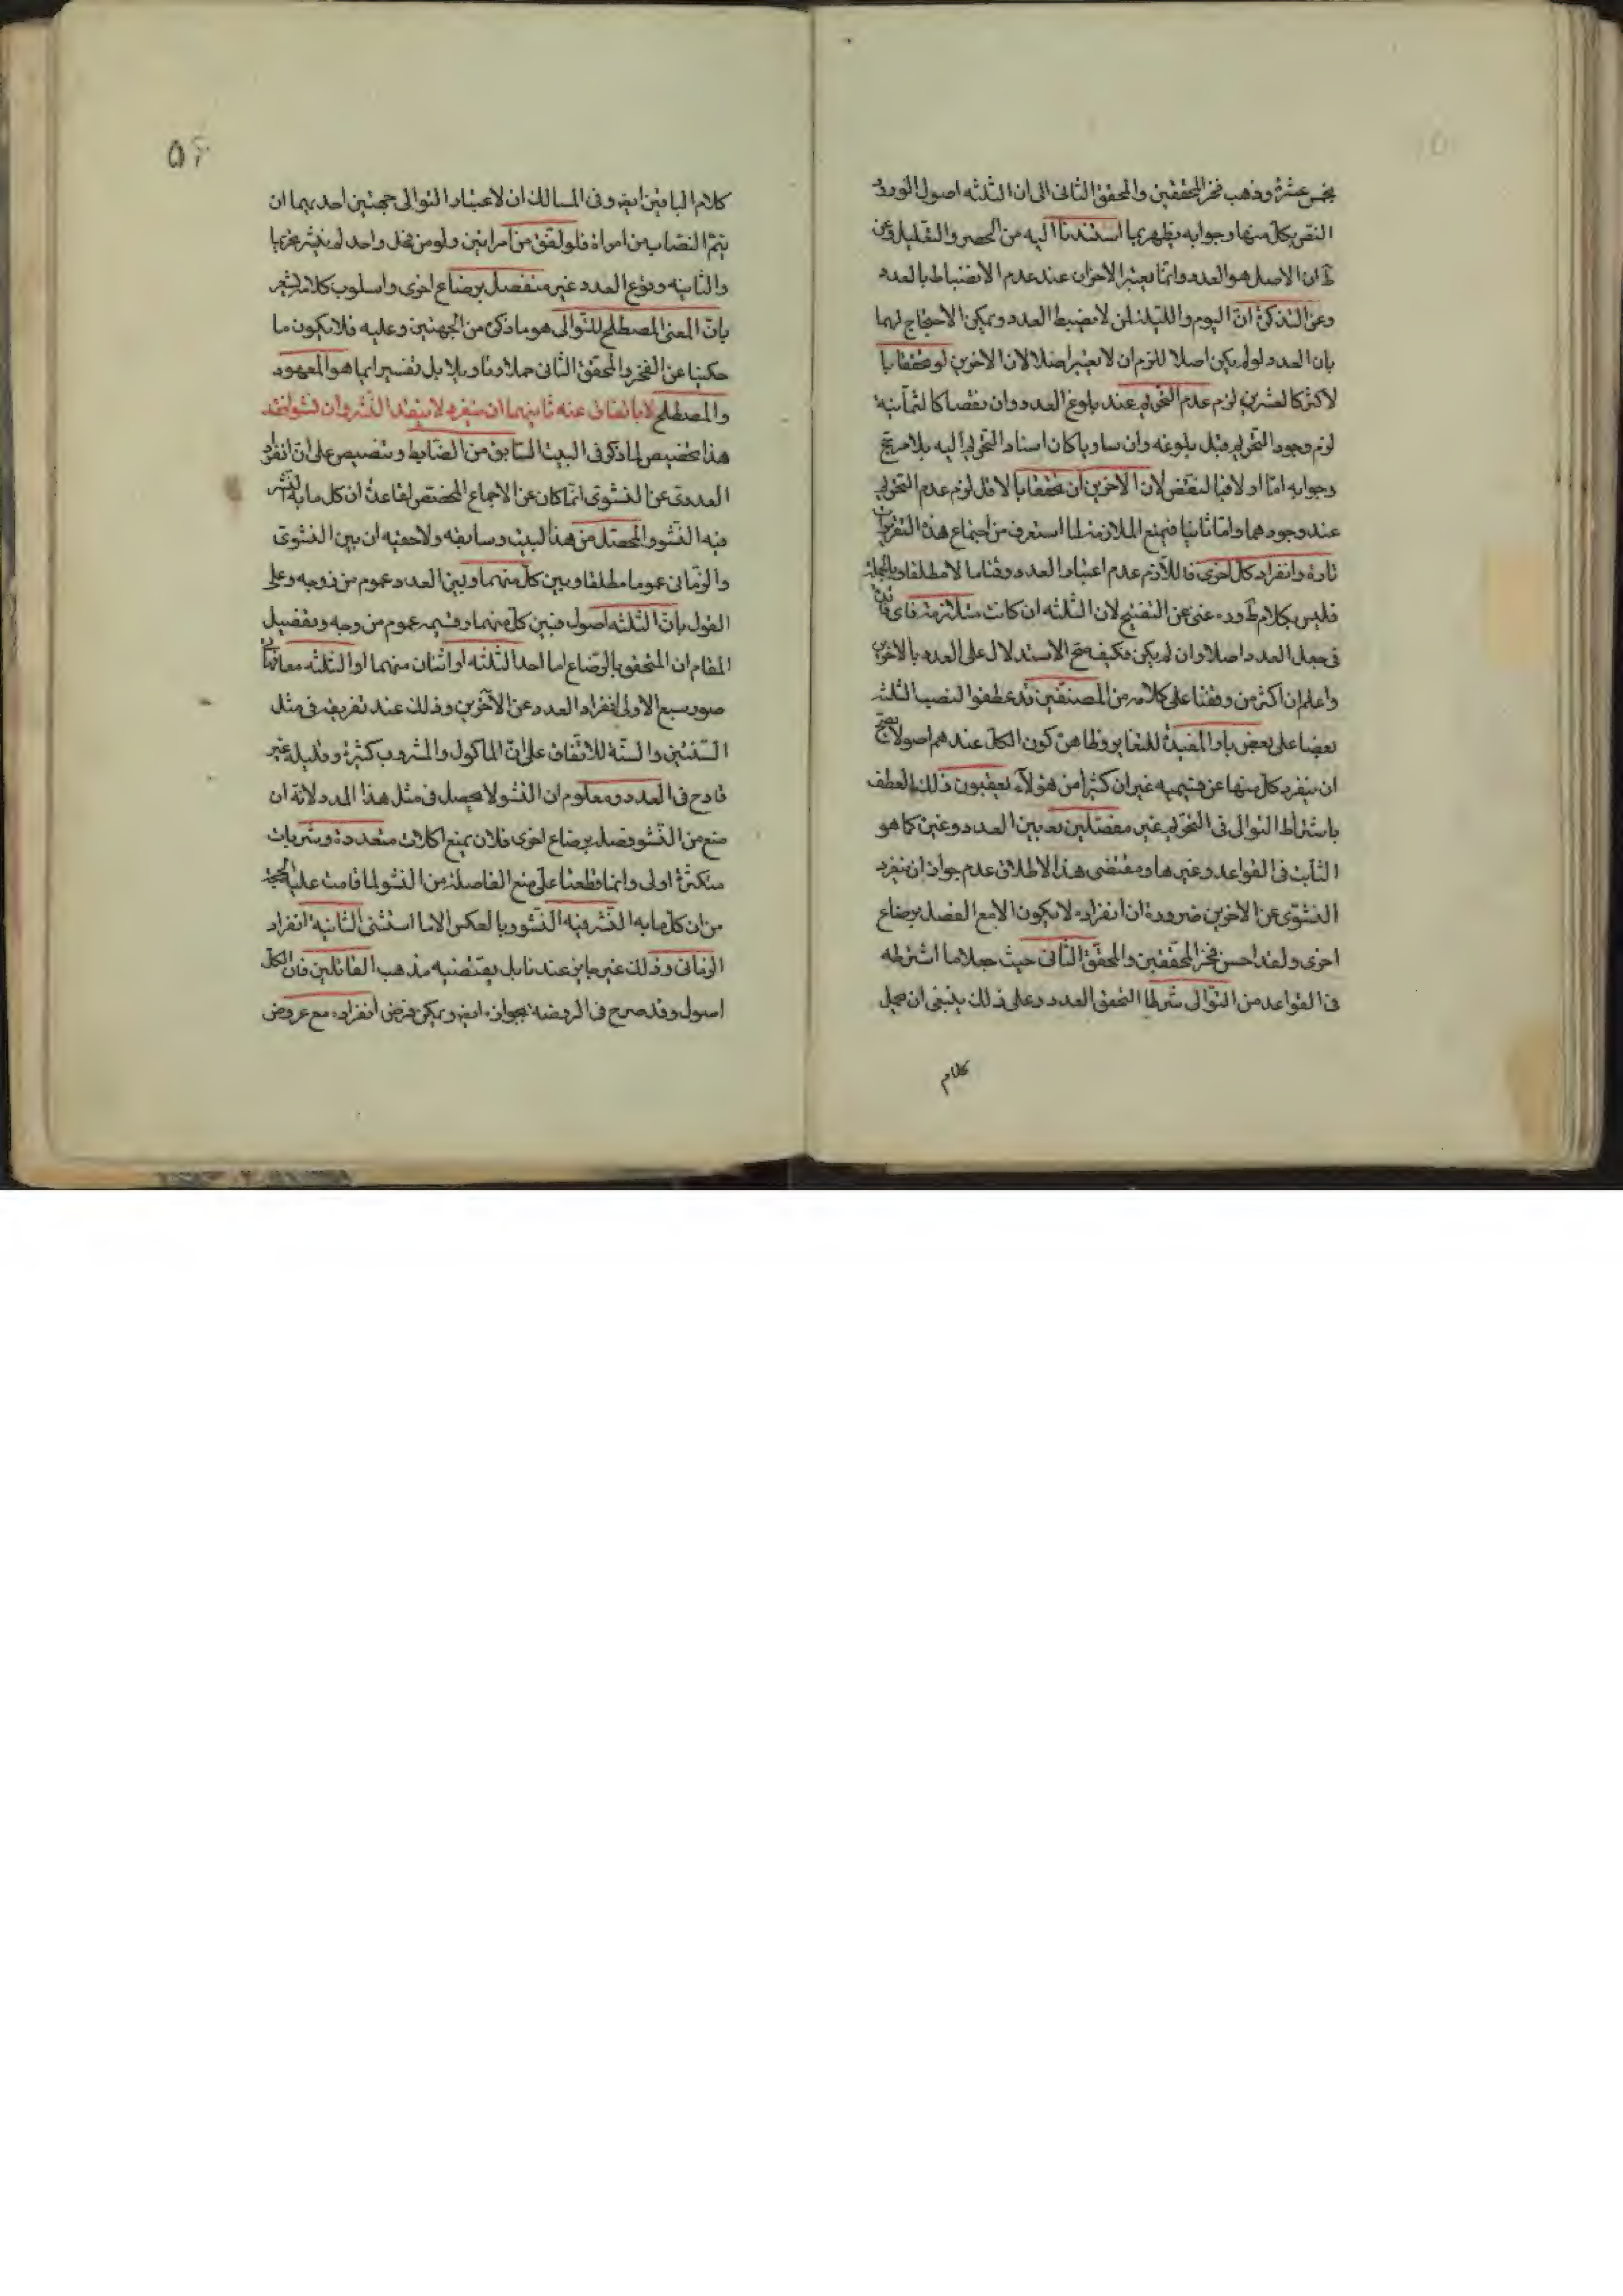 بخمس عشرة وذهب فخر المحققين والمحقق الثانى الى ان الثلثه اصول لورود
النص بكل منها وجوابه يظهر بما استندنا اليه من الحصر والتعليل وعن
ط ان الاصل هو العدد وانما يعتبر الاخران عند عدم الانضباط بالعدد
وعن التذكرة ان اليوم والليلة لمن لا يضبط العدد ويمكن الاحتجاج لهما
بان العدد لو لم يكن اصلا للزم ان لا يعتبر اصلا لان الاخرين لو تحققا با
لاكثر كالعشرين لزم عدم التحريم عند بلوغ العدد وان نقصا كالثمانية
لزم وجود التحريم قبل بلوغه وان ساويا كان اسناد التحريم اليه بلا مرجح
وجوابه اما اولا فبالنقض لان الاخرين ان تحققا بالاقل لزم عدم التحريم
عند وجودهما واما ثانيا فبمنع الملازمة لما استعرف من اجتماع هذه
تارة وانفراد كل اخرى فاللازم عدم اعتبار العدد وقتا ما لا مطلقا وبالجملة
فليس بكلام ط وره غنى عن التنقيح لان الثلثه ان كانت متلازمة فاى
فى جعل العدد اصلا وان لم يكن فكيف صح الاستدلال على العدد بالاخرين
واعلم ان اكثر من وقفنا على كلامه من المصنفين قد عطفوا النصب الثلثه
بعضا على بعض باو المفيدة للتغاير وظاهره كون الكل عندهم اصولا
ان ينفرد كل منها عن قسيميه غير ان كثيرا من هؤلاء يعقبون ذلك العطف
باشتراط التوالى فى التحريم غير مفصلين بين العدد وغيره كما هو
الثابت فى القواعد وغيرها ومقتضى هذا الاطلاق عدم جواز ان ينفرد
النشوى عن الاخرين ضرورة ان انفراده لا يكون الا مع الفصل برضاع
اخرى ولقد احسن فخر المحققين والمحقق الثانى حيث جعلا ما اشترطه
فى القواعد من التوالى شرطا لتحقق العدد وعلى ذلك ينبغى ان يحمل
كلام
٥٢
كلام الباقين ايضا وفى المسالك ان لاعتبار التوالى جهتين احديهما ان
يتم النصاب من امراة فلو لفق من امراتين ولو من فحل واحد لم ينشر تحريما
والثانيه وقوع العدد غير منفصل برضاع اخرى واسلوب كلامه يشعر
بان المعنى المصطلح للتوالى هو ما ذكره من الجهتين وعليه فلا يكون ما
حكينا عن الفخر والمحقق الثانى حملا وتاويلا بل تفسيرا بما هو المعهود
والمصطلح لا باتفاق عنه ثانيهما ان ينفرد لا ينفد النشر وان نشو
هذا تخصيص لما ذكر فى البيت السابق من الضابط وتنصيص على ان انفراد
العددى عن النشوى انما كان عن الاجماع المخصص لقاعدة ان كل ما به النشر
فيه النشو والمحصل من هذا البيت وسابقه ولاحقيه ان بين النشوى
والزمانى عموما مطلقا وبين كل منهما وبين العدد عموم من وجه وعلى
القول بان الثلثه اصول فبين كل منهما وقسيمه عموم من وجه وتفصيل
المقام ان المتحقق بالرضاع اما احد الثلثه او اثنان منهما او الثلثه معا
صور سبع الاولى انفراد العدد عن الاخرين وذلك عند تفريقه فى مثل
السنتين والسنة للاتفاق على ان الماكول والمشروب كثيره وقليله غير
قادح فى العدد ومعلوم ان النشو لا يحصل فى مثل هذا المدد لانه ان
منع من النشو فصل برضاع اخرى فلان يمنع اكلات متعددة وشربات
متكثرة اولى وانما قطعنا على منع الفاصلة من النشو لما قامت عليه الحجة
من ان كل ما به النشر فيه النشو وبالعكس الا ما استثنى الثانيه انفراد
الزمانى وذلك غير جايز عندنا بل يقتضيه مذهب القائلين فان الكل
اصول وقد صرح فى الروضه بجوازه ايضا ويمكن فرض انفراده مع عروض